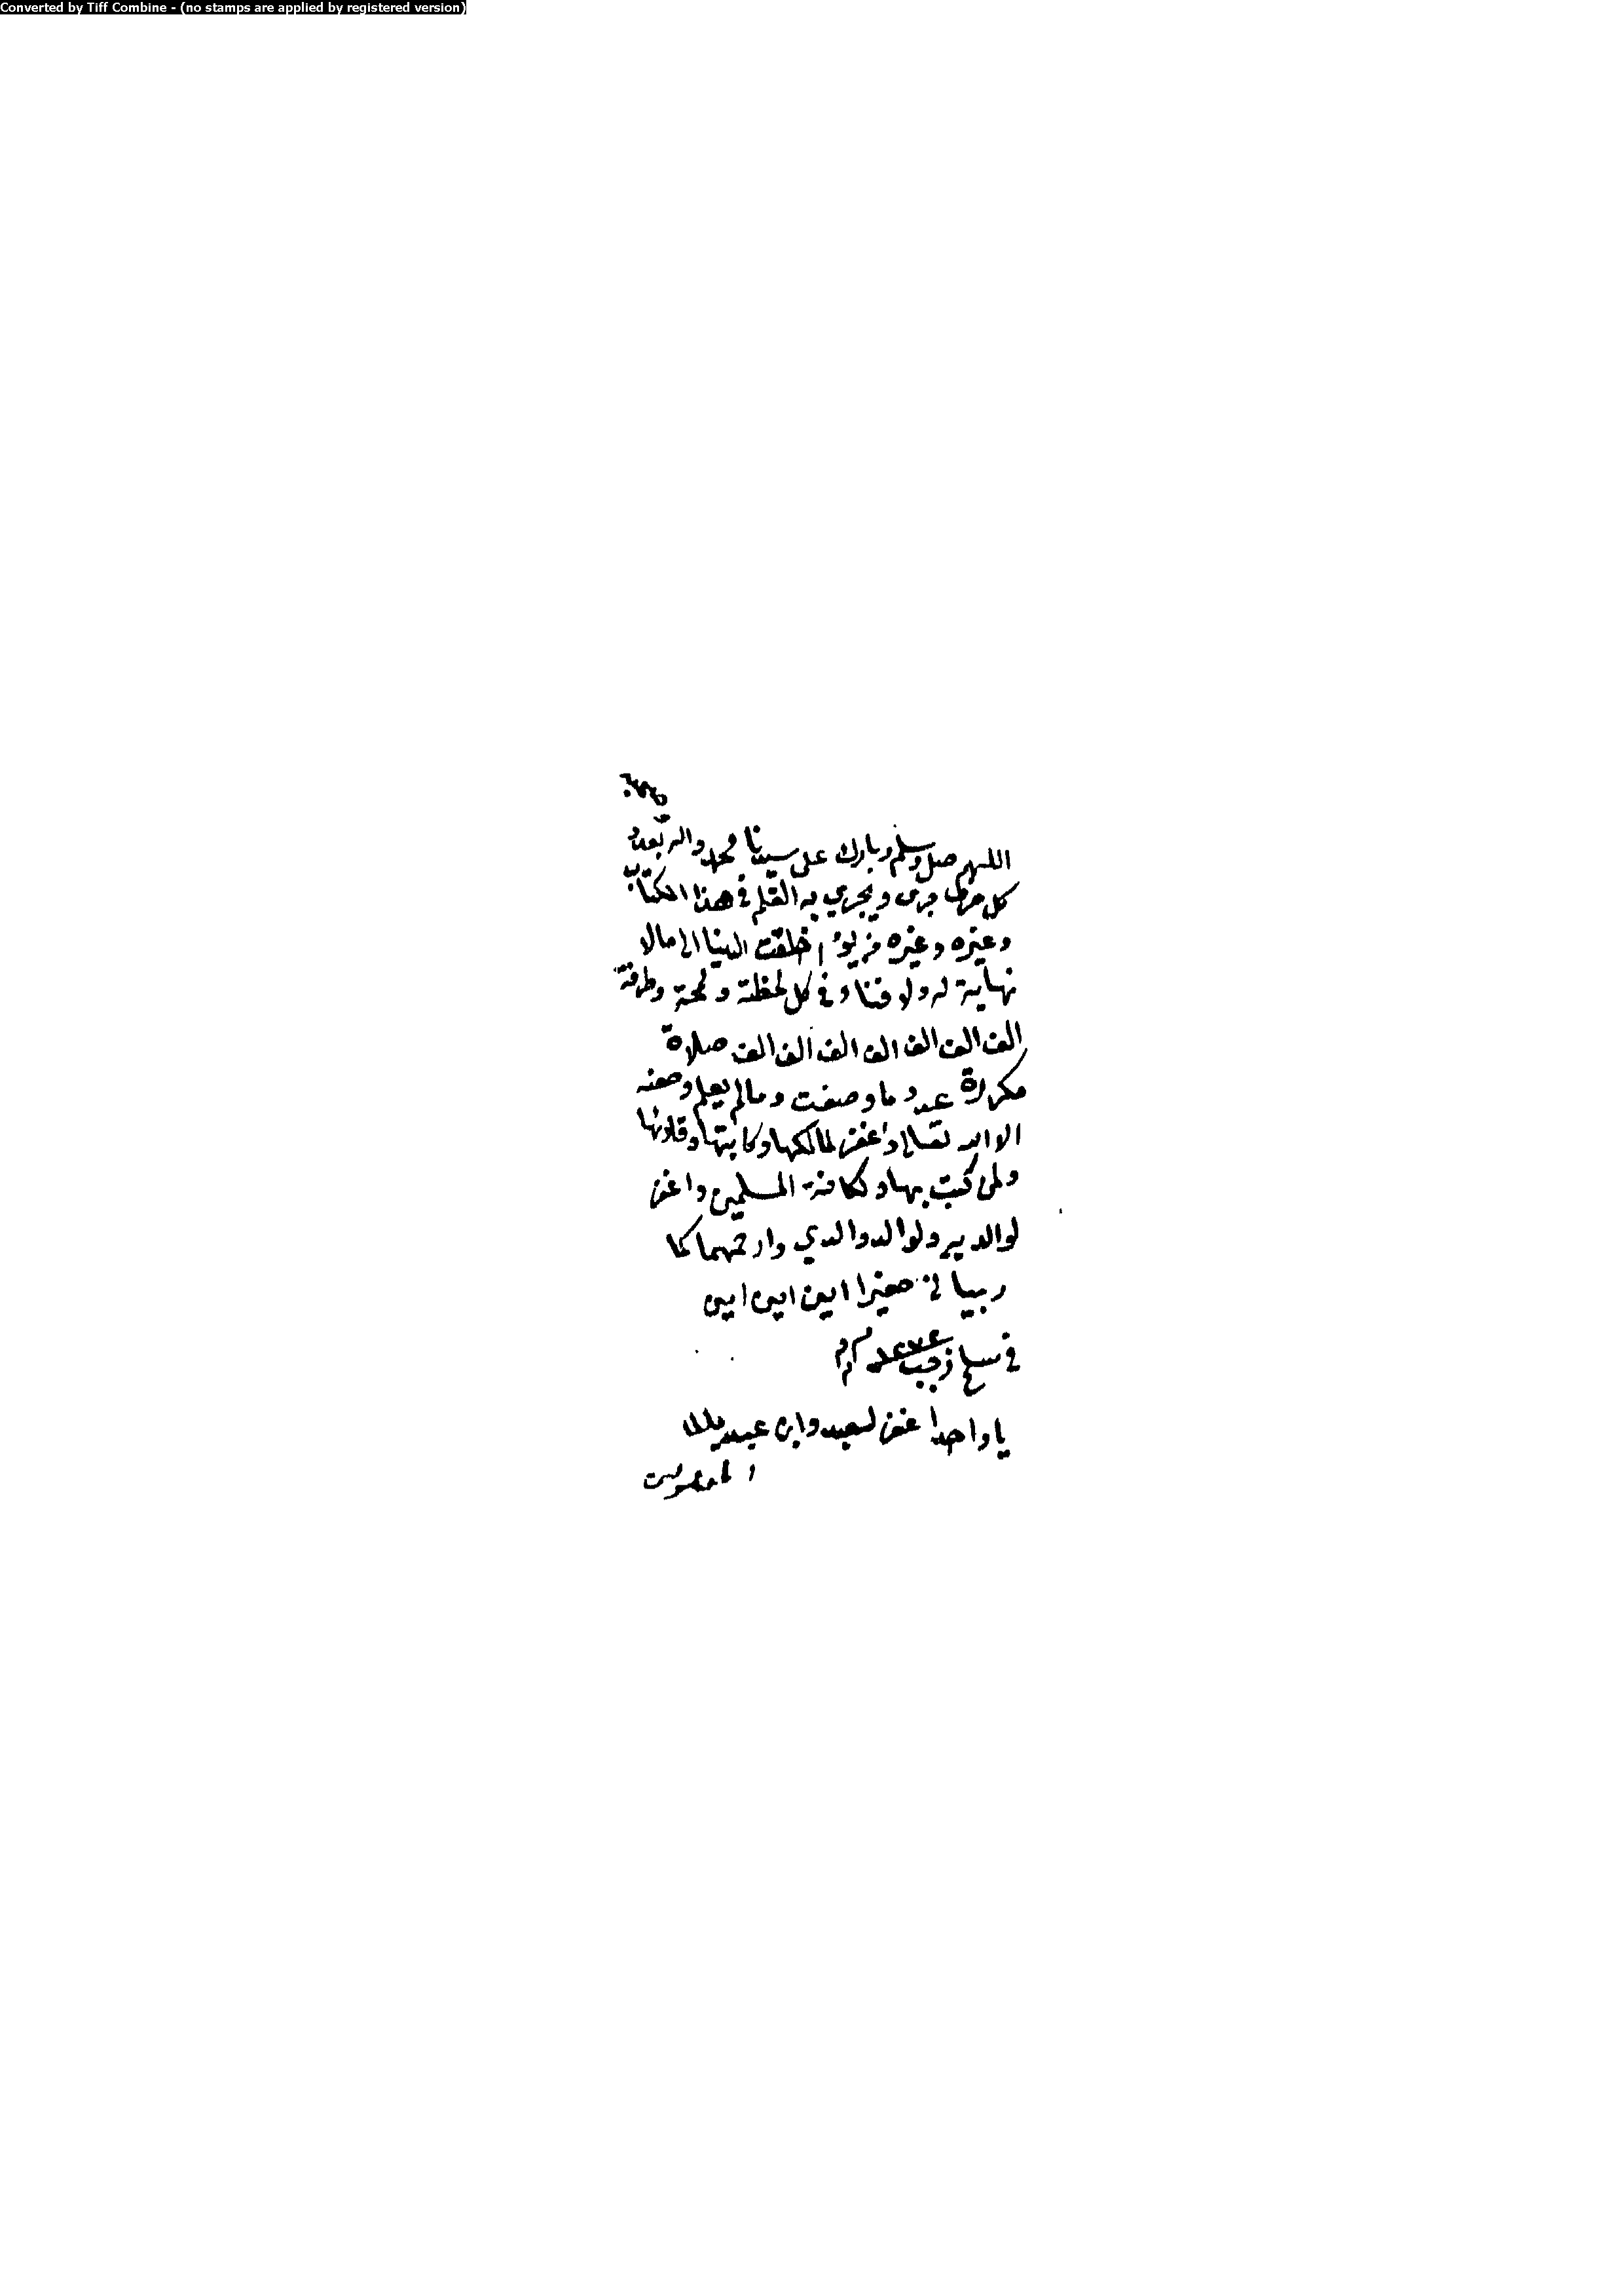 Converted by Tiff Combine - (no stamps are applied by registered version)
اللهم صل وسلم وبارك على سيدنا محمد واله بعدد
كل حرف جرى ويجري به القلم في هذا الكتاب
وغيره وغيره من يوم خلقت الدنيا الى مالا
نهاية له ولا فناء في كل لحظة ولمحة وطرفة
الف الف الف الف الف الف الف صلاة
مكررة عدد ما وصفت ومالم يعلم وصفه
الا الله تعالى واغفر لمالكها وكاتبها وقارئها
ولمن كتبت بها ولكافة المسلمين واغفر
لوالديه ولوالد والدي وارحمهما كما
ربياني صغيرا امين امين امين
في سلخ رجب
يا واحد اغفر لسعيد وابن عبيد